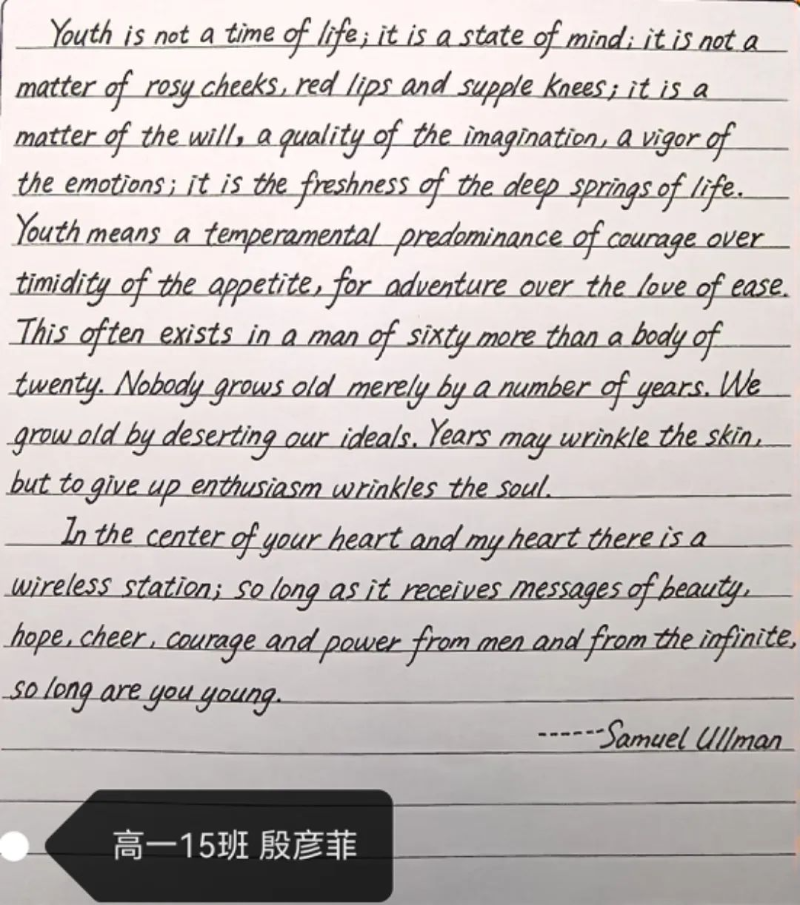 Youth is not a time of life; it is a state of mind; it is not a
matter of rosy cheeks, red lips and supple knees; it is a
matter of the will, a quality of the imagination, a vigor of
the emotions; it is the freshness of the deep springs of life.
Youth means a temperamental predominance of courage over
timidity of the appetite, for adventure over the love of ease.
This often exists in a man of sixty more than a body of
twenty. Nobody grows old merely by a number of years. We
grow old by deserting our ideals. Years may wrinkle the skin,
but to give up enthusiasm wrinkles the soul.
In the center of your heart and my heart there is a
wireless station; so long as it receives messages of beauty,
hope, cheer, courage and power from men and from the infinite,
so long are you young.
------Samuel Ullman
高一15班 殷彦菲